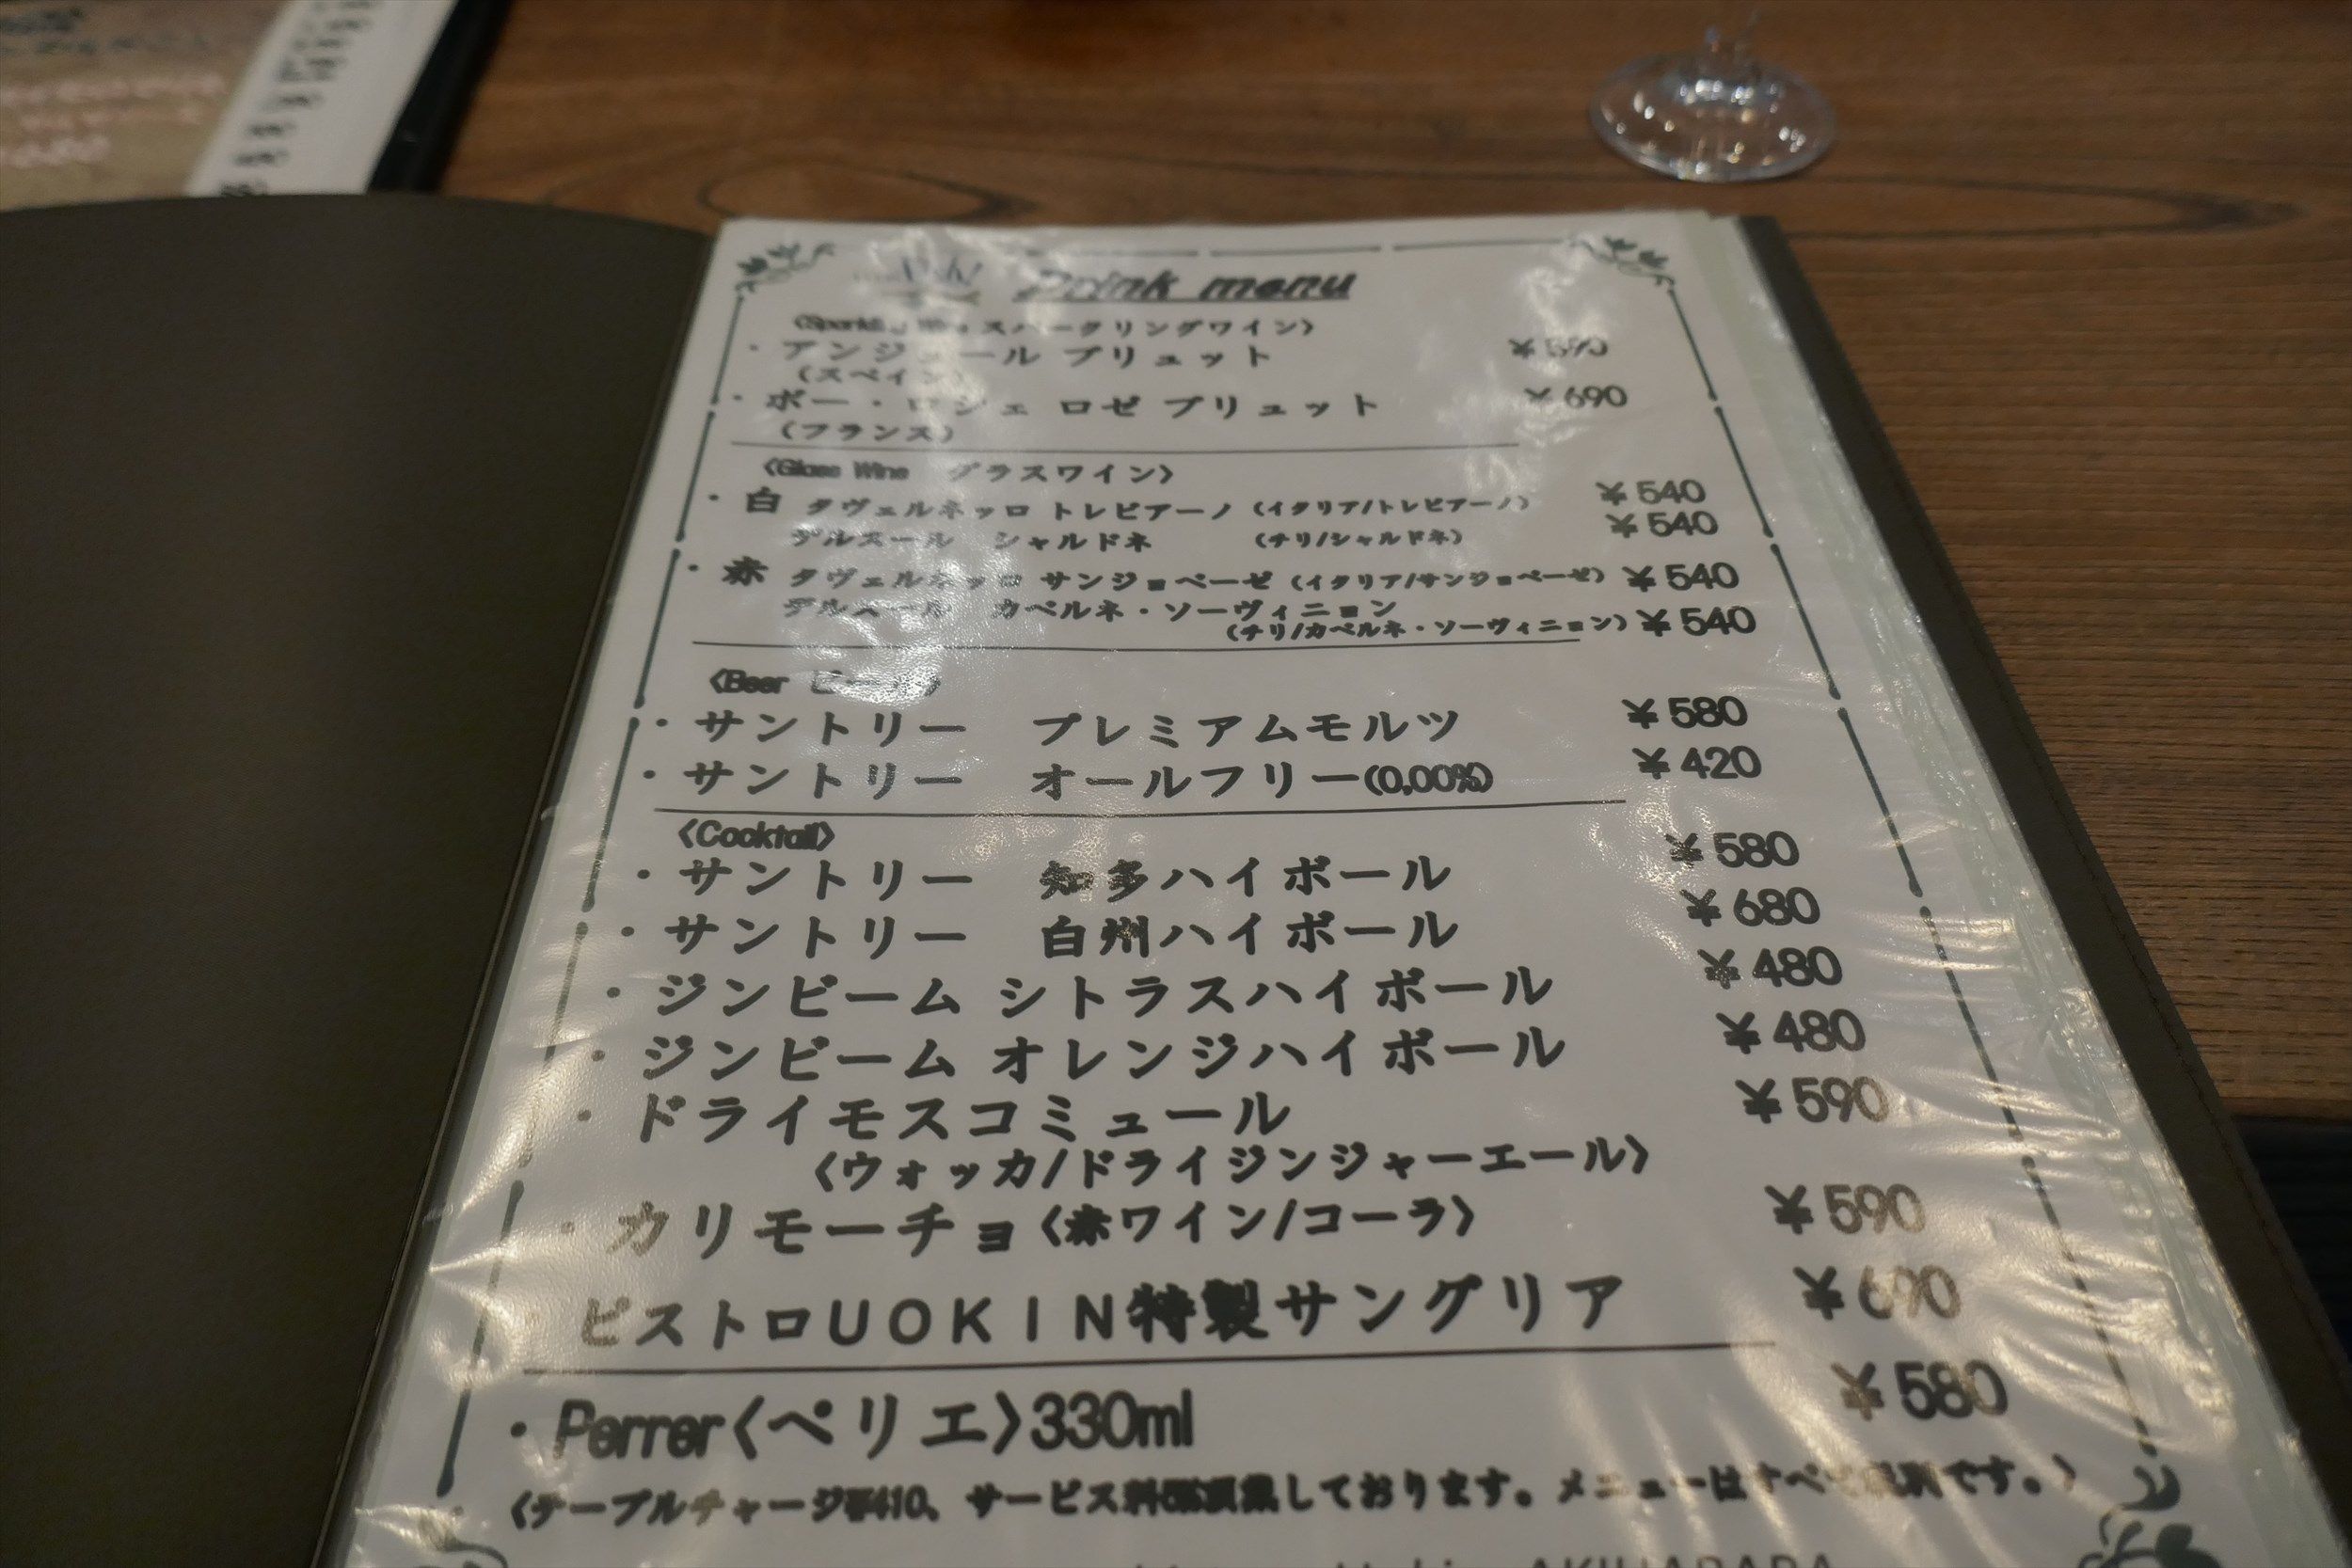 Drink menu
スパークリングワイン〉
・アンジュール ブリュット ¥590
(スペイン)
・ポー・ロジェ ロゼ ブリュット ¥690
(フランス)
〈Glass Wine グラスワイン〉
・白 タヴェルネッロ トレビアーノ (イタリア/トレビアーノ) ¥540
デルスール シャルドネ (チリ/シャルドネ) ¥540
・赤 タヴェルネッロ サンジョベーゼ (イタリア/サンジョベーゼ) ¥540
デルスール カベルネ・ソーヴィニョン
(チリ/カベルネ・ソーヴィニョン) ¥540
〈Beer ビール〉
・サントリー プレミアムモルツ ¥580
・サントリー オールフリー(0,00%) ¥420
〈Cocktail〉
・サントリー 知多ハイボール ¥580
・サントリー 白州ハイボール ¥680
・ジンビーム シトラスハイボール ¥480
・ジンビーム オレンジハイボール ¥480
・ドライモスコミュール ¥590
〈ウォッカ/ドライジンジャーエール〉
・カリモーチョ〈赤ワイン/コーラ〉 ¥590
・ビストロUOKIN特製サングリア ¥690
・Perrer〈ペリエ〉330ml ¥580
〈テーブルチャージ¥410、サービス料 しております。メニューはすべて税別です。〉
AKIHABARA